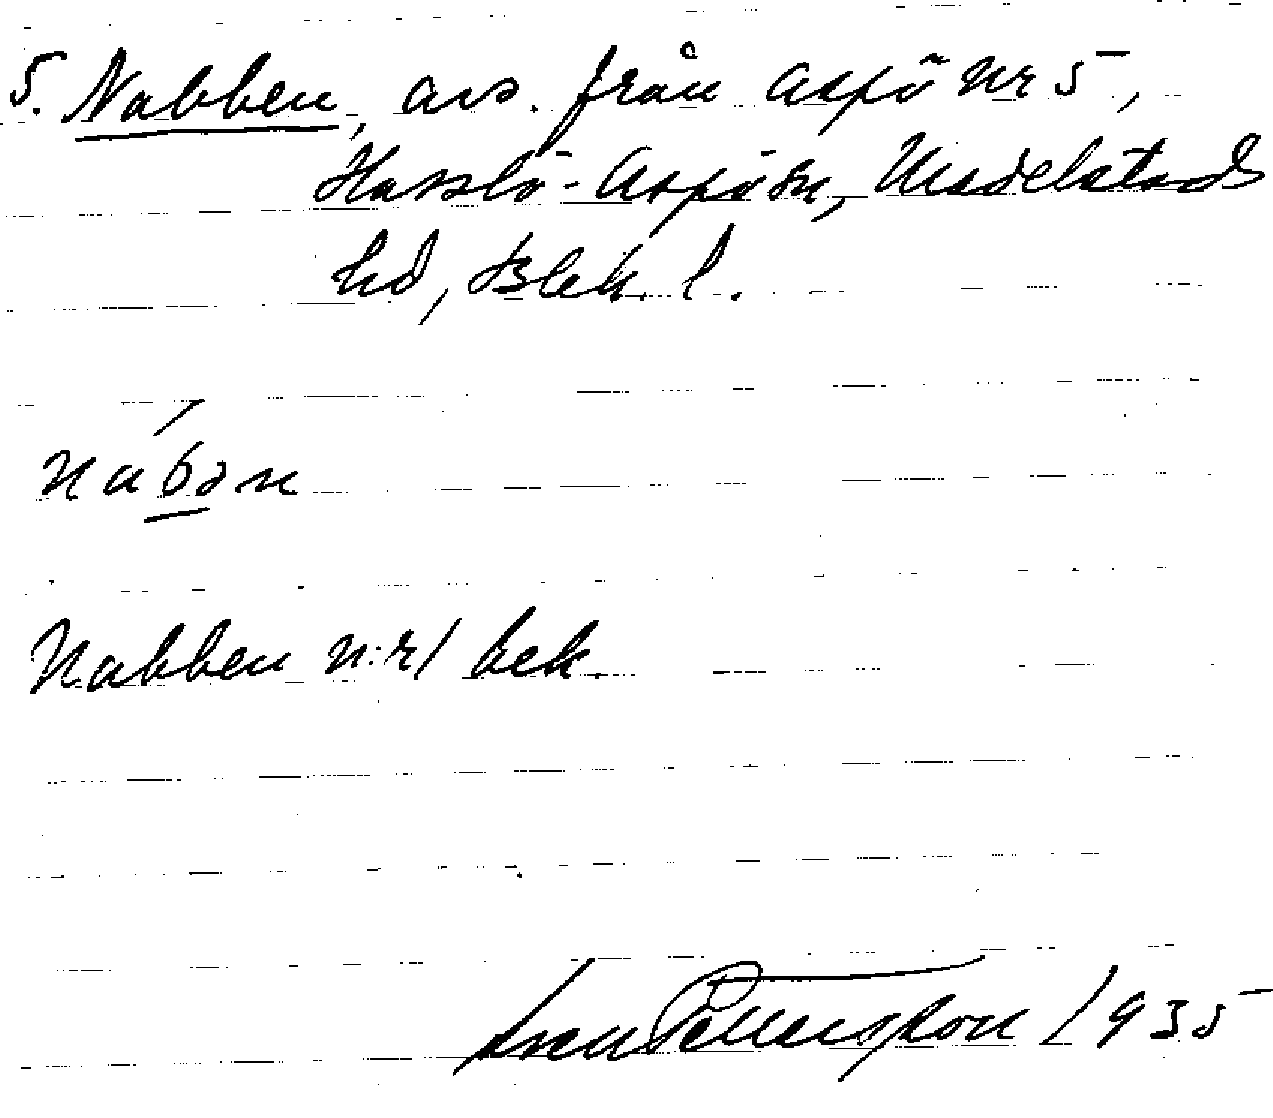 5. Nabben, avs. från Aspö nr 5,
Hasslö-Aspö sn, Medelstads
hd, Blek. l.
nabən
Nabben n:r 1 bek.
Sven Pettersson 1935